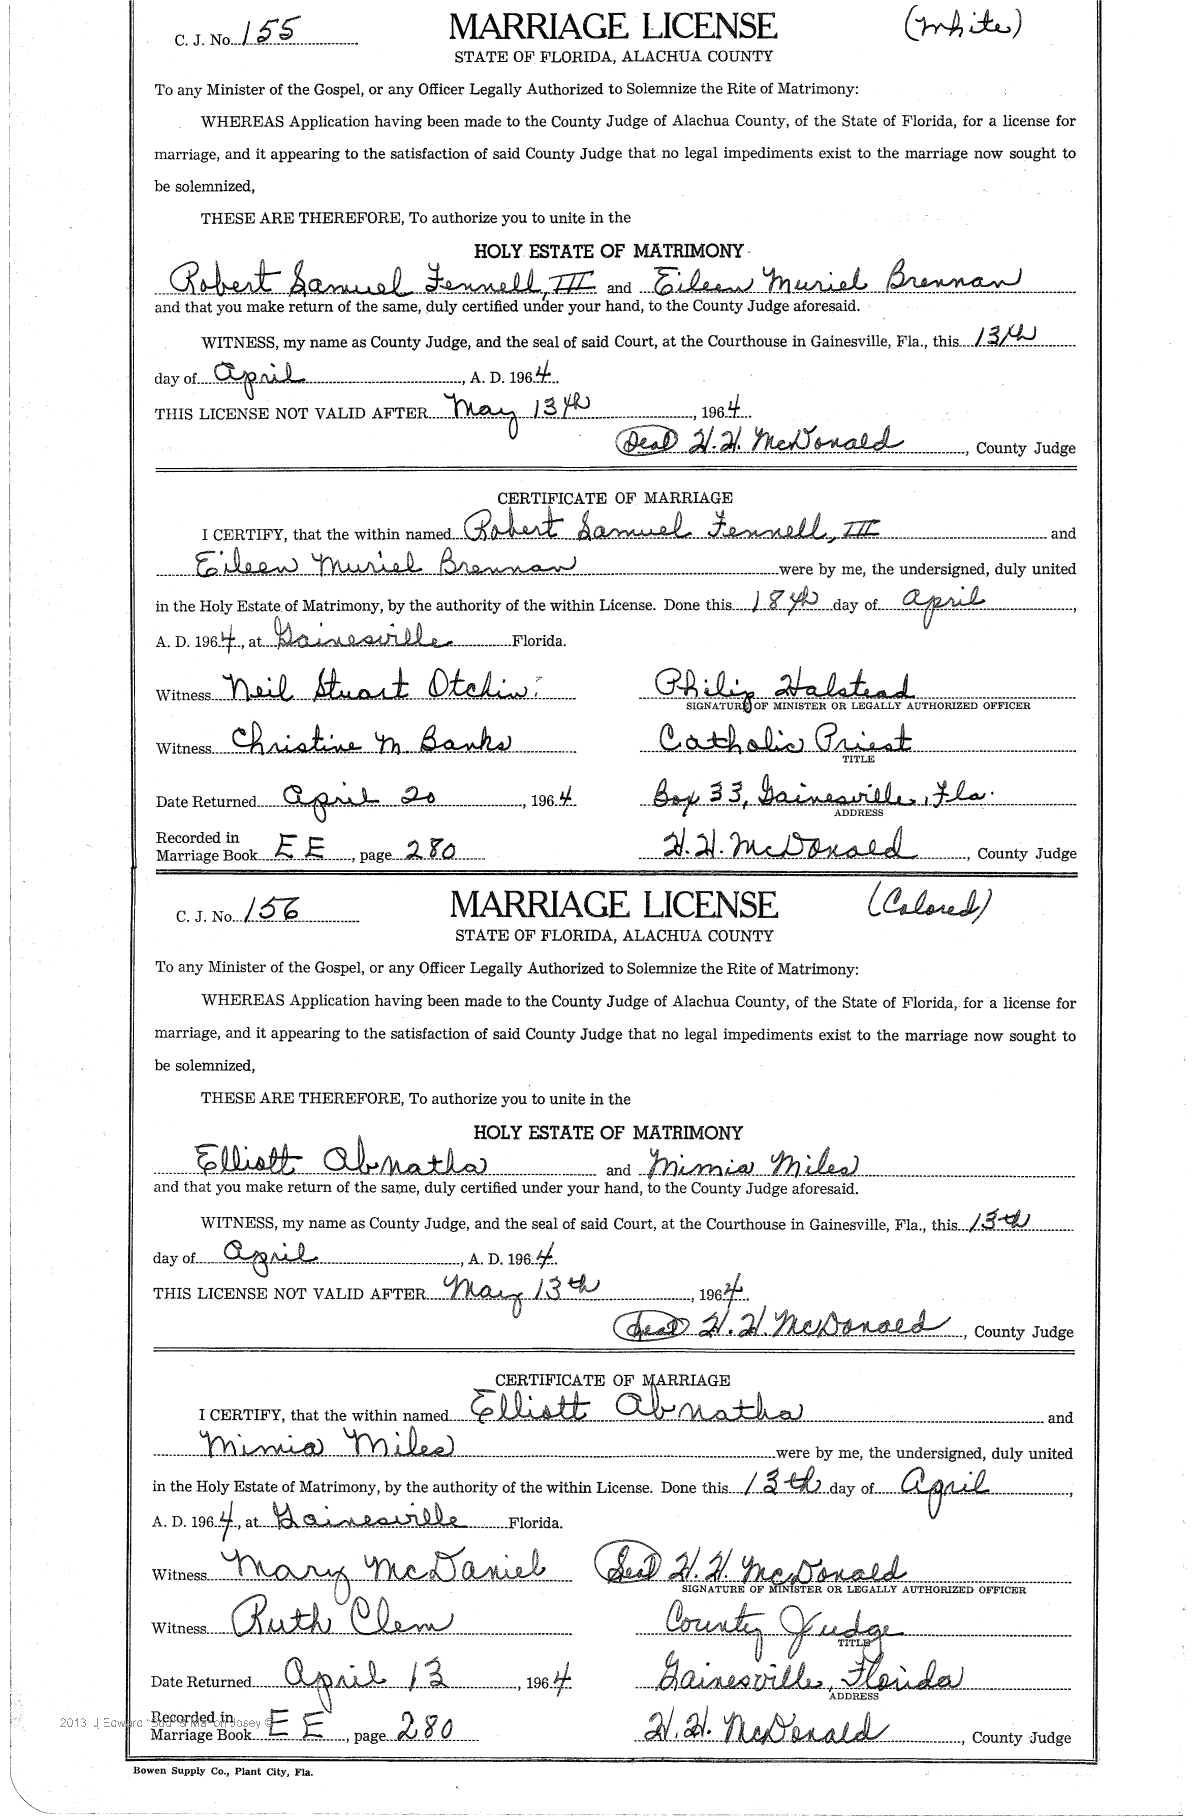 C. J. No. 155 MARRIAGE LICENSE (White)
STATE OF FLORIDA, ALACHUA COUNTY
To any Minister of the Gospel, or any Officer Legally Authorized to Solemnize the Rite of Matrimony:
WHEREAS Application having been made to the County Judge of Alachua County, of the State of Florida, for a license for
marriage, and it appearing to the satisfaction of said County Judge that no legal impediments exist to the marriage now sought to
be solemnized,
THESE ARE THEREFORE, To authorize you to unite in the
HOLY ESTATE OF MATRIMONY
Robert Samuel Fennell, III and Eileen Muriel Brennan
and that you make return of the same, duly certified under your hand, to the County Judge aforesaid.
WITNESS, my name as County Judge, and the seal of said Court, at the Courthouse in Gainesville, Fla., this 13th
day of April, A. D. 1964.
THIS LICENSE NOT VALID AFTER May 13th, 1964.
(Seal) H. H. McDonald, County Judge
CERTIFICATE OF MARRIAGE
I CERTIFY, that the within named Robert Samuel Fennell, III and
Eileen Muriel Brennan were by me, the undersigned, duly united
in the Holy Estate of Matrimony, by the authority of the within License. Done this 18th day of April,
A. D. 1964, at Gainesville Florida.
Witness Neil Stuart Otchin Philip Halstead
SIGNATURE OF MINISTER OR LEGALLY AUTHORIZED OFFICER
Witness Christine M. Banks Catholic Priest
TITLE
Date Returned April 20, 1964 Box 33, Gainesville, Fla.
ADDRESS
Recorded in
Marriage Book EE, page 280 H. H. McDonald, County Judge
C. J. No. 156 MARRIAGE LICENSE (Colored)
STATE OF FLORIDA, ALACHUA COUNTY
To any Minister of the Gospel, or any Officer Legally Authorized to Solemnize the Rite of Matrimony:
WHEREAS Application having been made to the County Judge of Alachua County, of the State of Florida, for a license for
marriage, and it appearing to the satisfaction of said County Judge that no legal impediments exist to the marriage now sought to
be solemnized,
THESE ARE THEREFORE, To authorize you to unite in the
HOLY ESTATE OF MATRIMONY
Elliott Abnatha and Mimia Miles
and that you make return of the same, duly certified under your hand, to the County Judge aforesaid.
WITNESS, my name as County Judge, and the seal of said Court, at the Courthouse in Gainesville, Fla., this 13th
day of April, A. D. 1964.
THIS LICENSE NOT VALID AFTER May 13th, 1964.
(Seal) H. H. McDonald, County Judge
CERTIFICATE OF MARRIAGE
I CERTIFY, that the within named Elliott Abnatha and
Mimia Miles were by me, the undersigned, duly united
in the Holy Estate of Matrimony, by the authority of the within License. Done this 13th day of April,
A. D. 1964, at Gainesville Florida.
Witness Mary McDaniel (Seal) H. H. McDonald
SIGNATURE OF MINISTER OR LEGALLY AUTHORIZED OFFICER
Witness Ruth Clem County Judge
TITLE
Date Returned April 13, 1964 Gainesville, Florida
ADDRESS
Recorded in
2013 J. Edward "Sud" & Marion Josey ©
Marriage Book EE, page 280 H. H. McDonald, County Judge
Bowen Supply Co., Plant City, Fla.